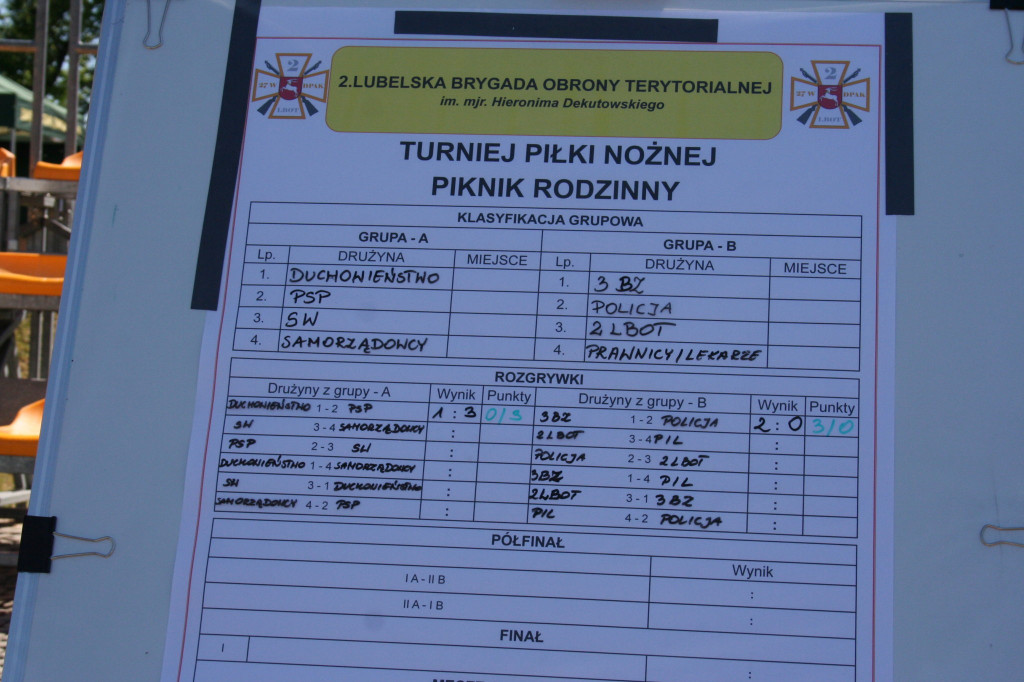 2
27 W DPAK
LBOT
2
27 W DPAK
LBOT
2.LUBELSKA BRYGADA OBRONY TERYTORIALNEJ
im. mjr. Hieronima Dekutowskiego
TURNIEJ PIŁKI NOŻNEJ
PIKNIK RODZINNY
KLASYFIKACJA GRUPOWA
GRUPA - A GRUPA - B
Lp. DRUŻYNA MIEJSCE Lp. DRUŻYNA MIEJSCE
1. DUCHOWIEŃSTWO 1. 3 BZ
2. PSP 2. POLICJA
3. SW 3. 2 LBOT
4. SAMORZĄDOWCY 4. PRAWNICY/LEKARZE
ROZGRYWKI
Drużyny z grupy - A Wynik Punkty Drużyny z grupy - B Wynik Punkty
DUCHOWIEŃSTWO 1 - 2 PSP 1 : 3 0/3 3BZ 1 - 2 POLICJA 2 : 0 3/0
SW 3 - 4 SAMORZĄDOWCY : 2LBOT 3 - 4 P/L :
PSP 2 - 3 SW : POLICJA 2 - 3 2LBOT :
DUCHOWIEŃSTWO 1 - 4 SAMORZĄDOWCY : 3BZ 1 - 4 P/L :
SW 3 - 1 DUCHOWIEŃSTWO : 2LBOT 3 - 1 3BZ :
SAMORZĄDOWCY 4 - 2 PSP : P/L 4 - 2 POLICJA :
PÓŁFINAŁ
Wynik
I A - II B :
II A - I B :
FINAŁ
I :